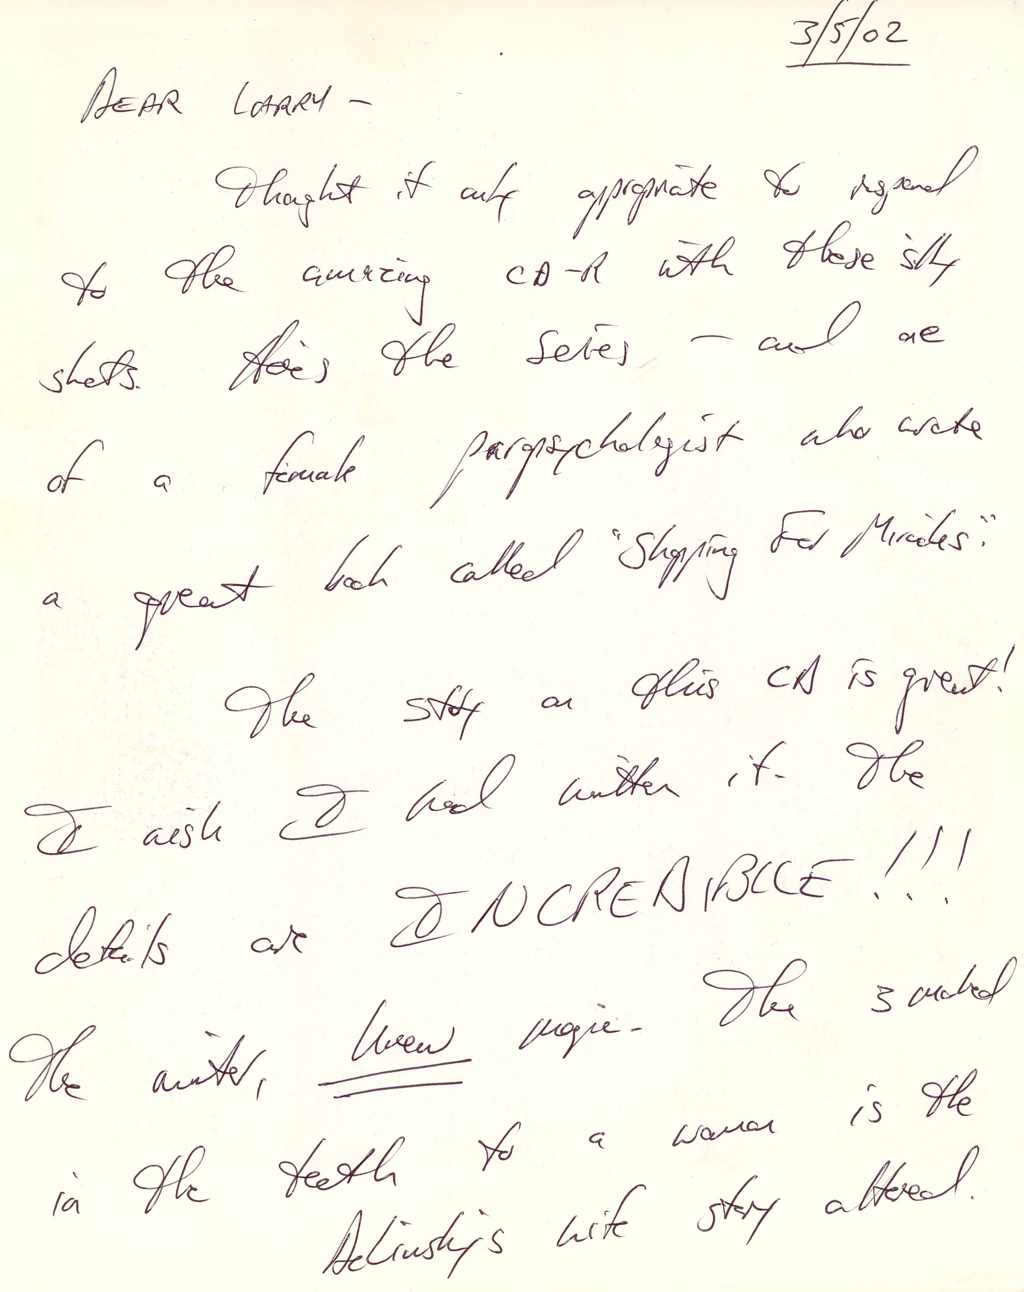 3/5/02
DEAR LARRY —
Thought it only appropriate to respond
to the amazing CD-R with these silly
shots. Here's the series — and one
of a female parapsychologist who wrote
a great book called "Shopping For Miracles".
The story on this CD is great!
I wish I had written it. The
details are INCREDIBLE!!!
The writer, knew magic. The 3 marked
in the teeth to a woman is the
wife story altered.